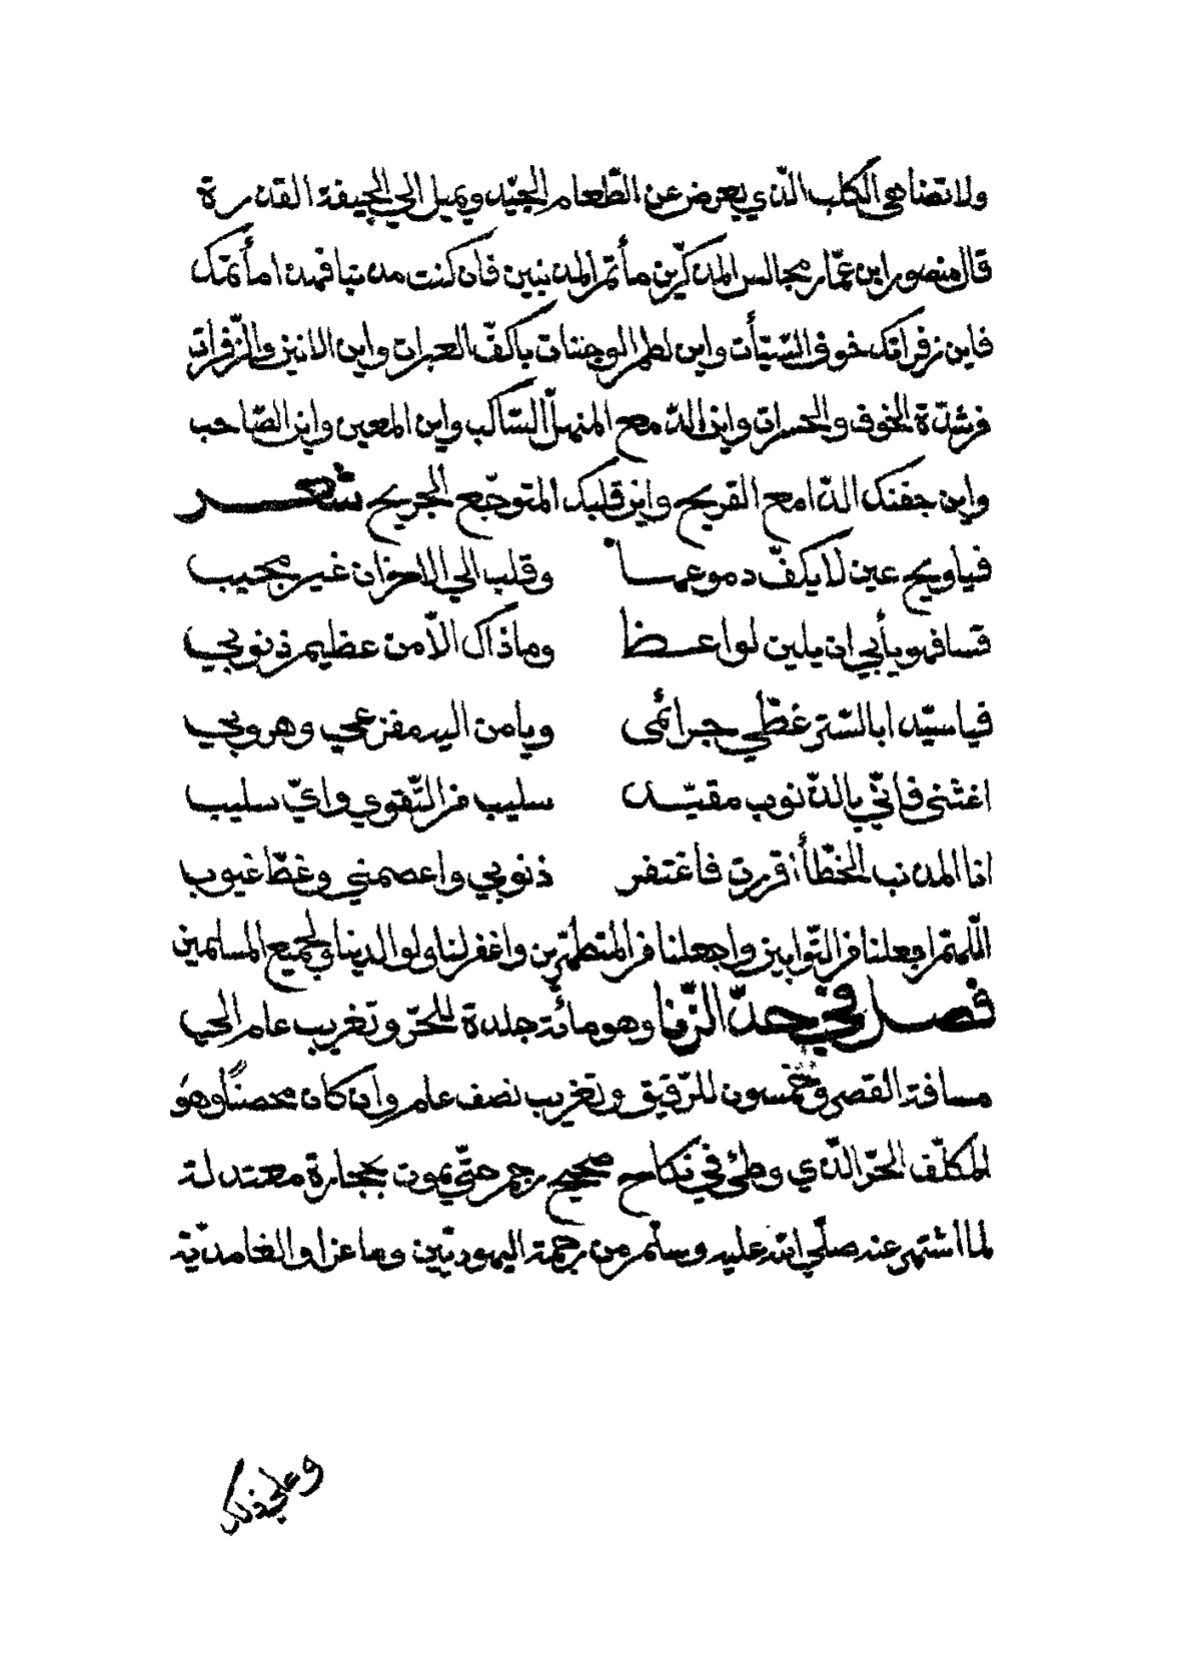 ولا تضاهي الكلب الذي يعرض عن الطّعام الجيّد ويميل الي الجيفة القذرة
قال منصور ابن عمّار مجالس المذكّرين مأتم المذنبين فان كنت مذنبا فهذا مأتمك
فاين زفراتك خوف السّيّأت واين لطم الوجنات بأكفّ العبرات واين الانين والزّفرات
من شدّة الخوف والحسرات واين الدّمع المنهلّ السّاكب واين المعين واين الصّاحب
واين جفنك الدّامع القريح واين قلبك المتوجّع الجريح شعر
فياويح عين لا يكفّ دموعها وقلب الي الاحزان غير مجيب
قسا فهو يأبي ان يلين لواعظ وما ذاك الاّ من عظيم ذنوبي
فيا سيّدا بالسّتر غطّي جرائمى ويا من اليه مفزعي وهروبي
اغثني فانّي بالذّنوب مقيّد سليب من التّقوي وايّ سليب
انا المذنب الخطّأ اقررت فاغتفر ذنوبي واعصمني وغطّ غيوب
اللّهمّ اجعلنا من التّوابين واجعلنا من المتطهّرين واغفر لنا ولوالدينا ولجميع المسلمين
فصل في حدّ الزّنا وهو مائة جلدة للحرّ وتغريب عام الي
مسافة القصر وخمسون للرّقيق وتغريب نصف عام وان كان محصنًا وهو
المكلّف الحرّ الّذي وطئ في نكاح صحيح رجم حتّي يموت بحجارة معتدلة
لما اشتهر عنه صلّي الله عليه وسلّم من رجمه اليهوديّين وماعزا والغامديّة
وعلي ذلك